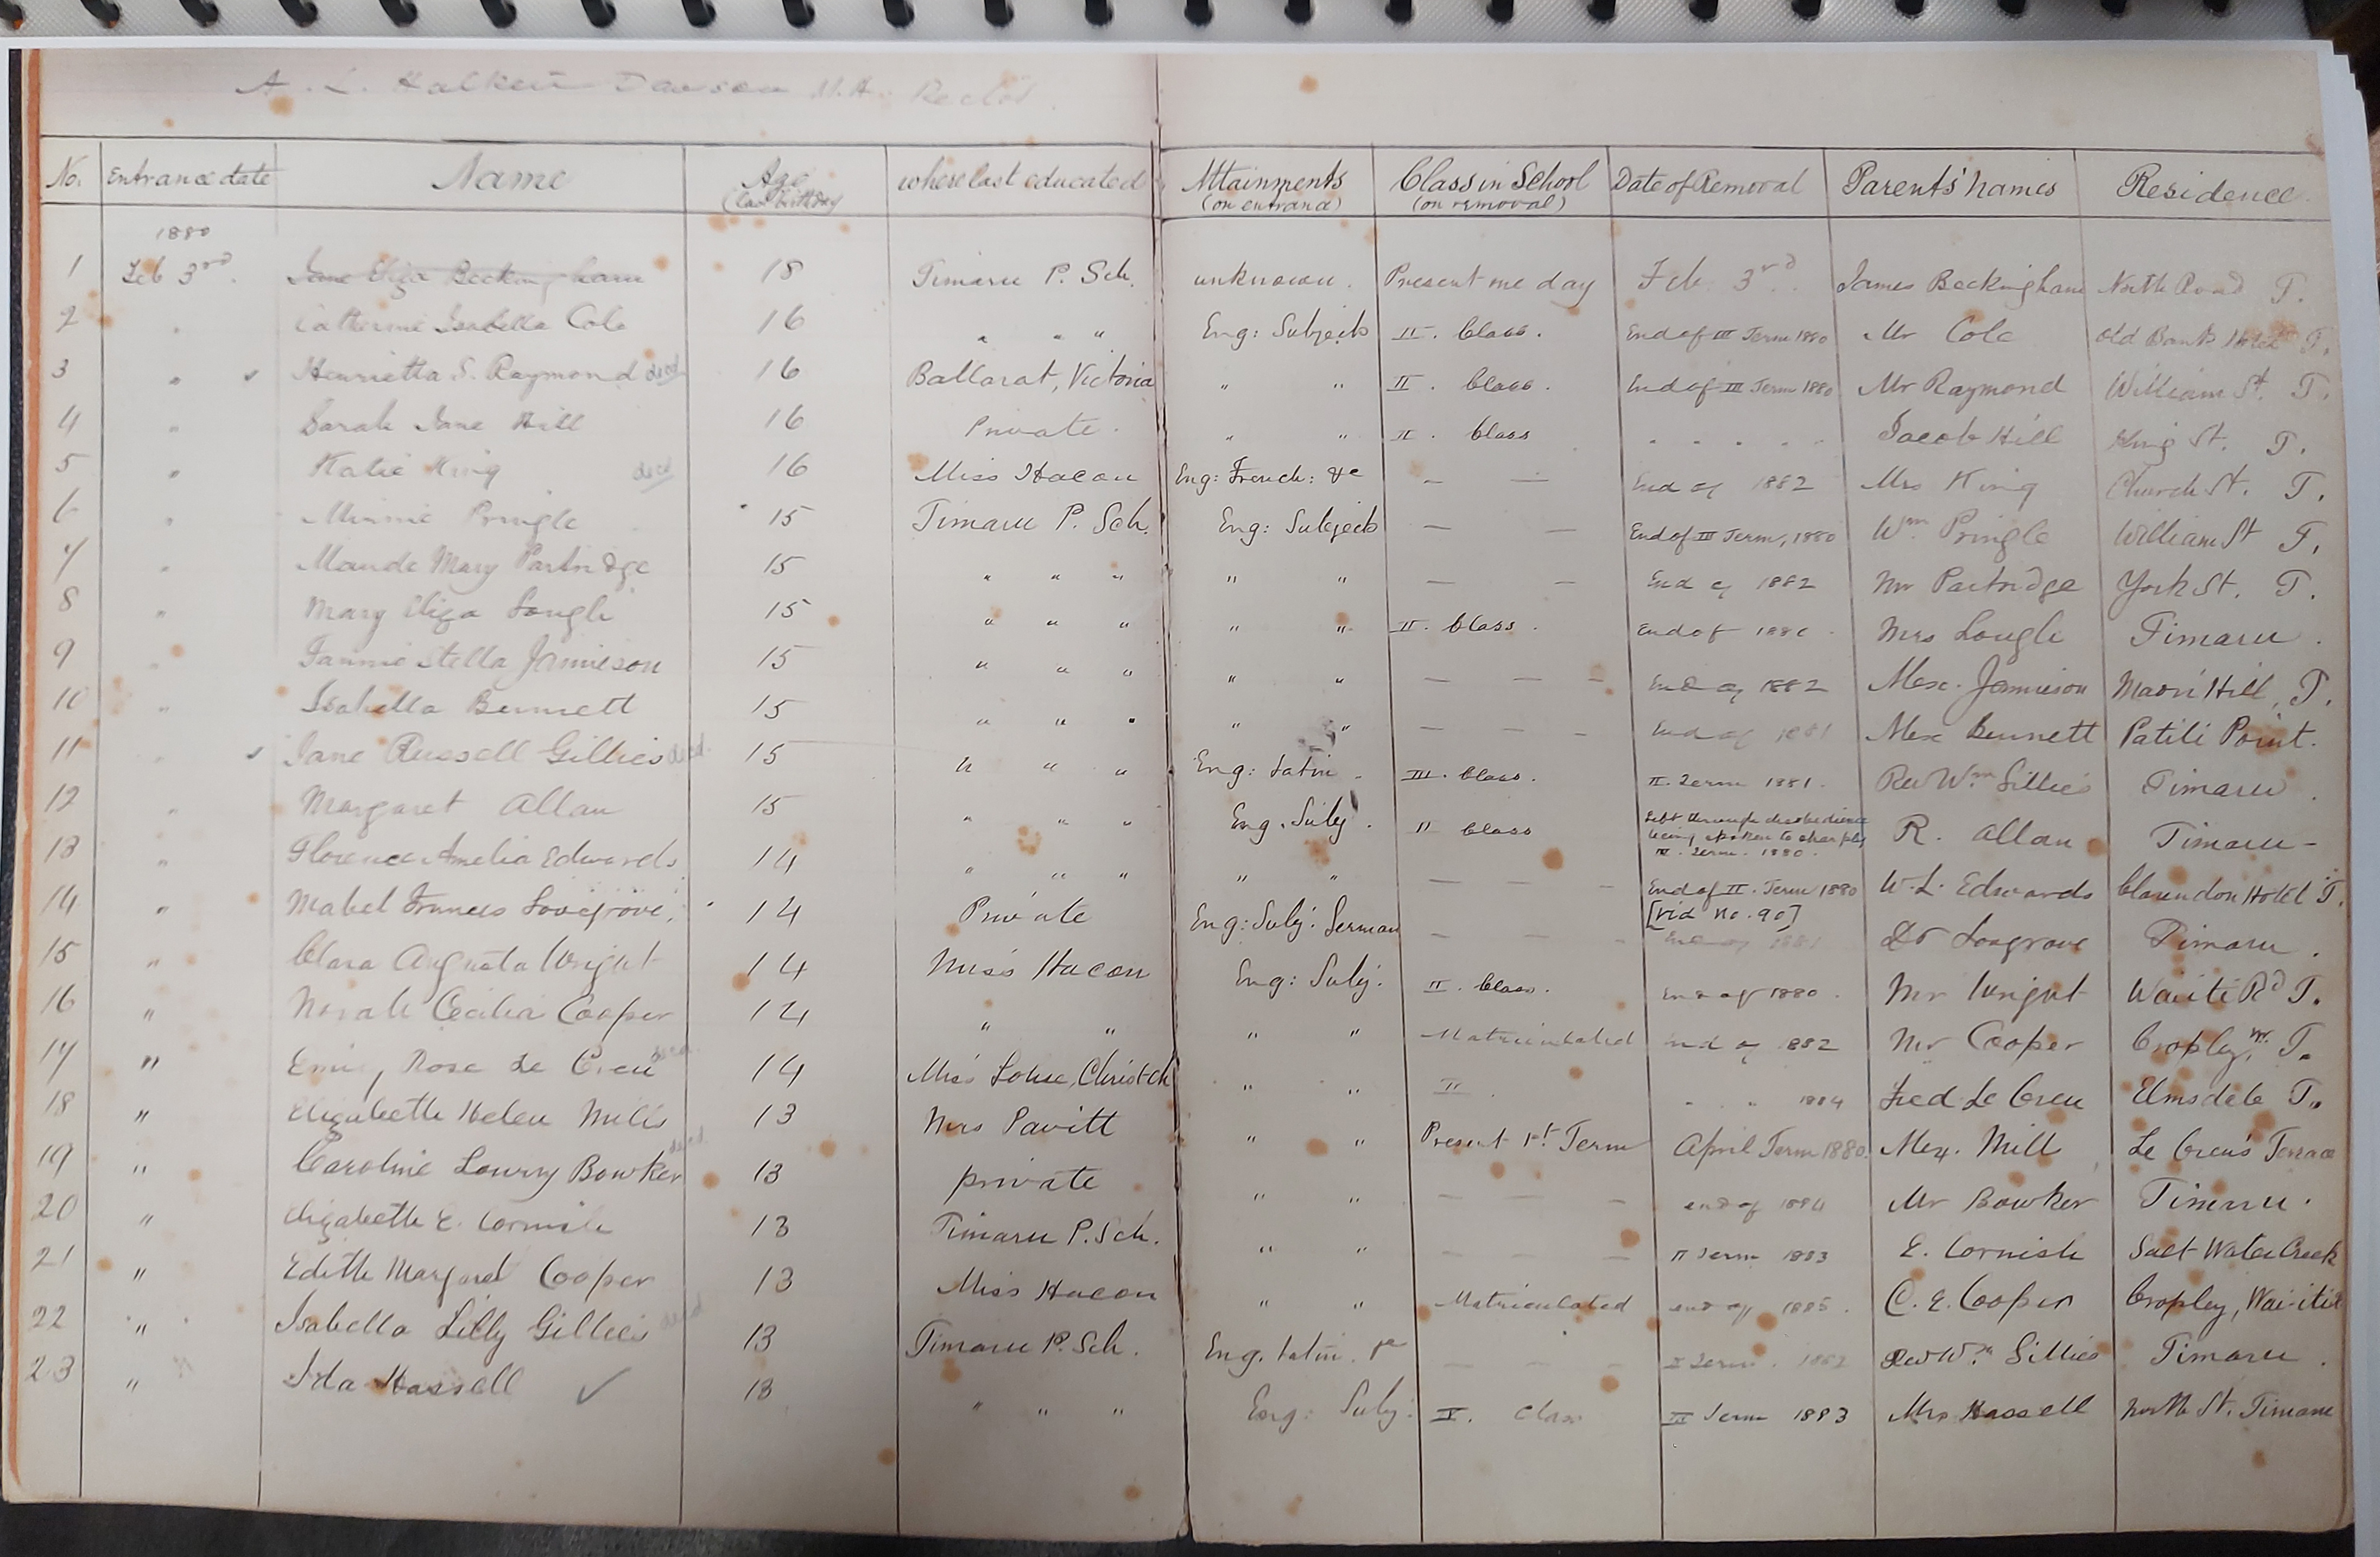 A. L. Halkett Dawson M.A. Rector.
No. Entrance date Name Age (last birthday) where last educated Attainments (on entrance) Class in School (on removal) Date of Removal Parents' names Residence.
1880
1 Feb 3rd. Jane Eliza Beckingham 18 Timaru P. Sch. unknown. Present one day Feb. 3rd. James Beckingham North Road T.
2 " Catherine Isabella Cole 16 " " " Eng: Subjects II. Class. End of III Term 1880 Mr Cole Old Bank Hotel T.
3 " ✓ Henrietta S. Raymond decd 16 Ballarat, Victoria " " II. Class. End of III Term 1880 Mr Raymond William St. T.
4 " Sarah Jane Hill 16 Private. " " II. Class " " " " " Jacob Hill King St. T.
5 " Katie King decd 16 Miss Hacon Eng: French: &c — — End of 1882 Mrs King Church St. T.
6 " Minnie Pringle 15 Timaru P. Sch. Eng: Subjects — — End of III Term, 1880 Wm Pringle William St T.
7 " Maude Mary Partridge 15 " " " " " — — End of 1882 Mr Partridge York St. T.
8 " Mary Eliza Lough 15 " " " " " II. Class. End of Mrs Lough Timaru.
9 " Fannie Stella Jamieson 15 " " " " " — — — End of 1882 Alex. Jamieson Maori Hill, T.
10 " Isabella Bennett 15 " " " " " — — — End of 1881 Alex Bennett Patiti Point.
11 " ✓ Jane Russell Gillies decd. 15 " " " Eng: Latin. III. Class. II. Term 1881. Rev Wm Gillies Timaru.
12 " Margaret Allan 15 " " " Eng. Subj. II Class Left through disobedience
being spoken to sharply
III. Term. 1880. R. Allan Timaru -
13 " Florence Amelia Edwards 14 " " " " " — — End of II. Term 1880
[vid No. 90] W. L. Edwards Clarendon Hotel T.
14 " Mabel Frances Lovegrove. 14 Private Eng: Subj: German — — — End of 1881 Dr Lovegrove Timaru.
15 " Clara Augusta Wright 14 Miss Hacon Eng: Subj. II. Class. End of 1880. Mr Wright Waiiti Rd T.
16 " Norah Cecilia Cooper 14 " " " " Matriculated end of 1882 Mr Cooper Cropley, T.
17 " Emily Rose Le Cren decd 14 Miss Lohse, Christch " " II. " " 1884 Fred Le Cren Elmsdale T.
18 " Elizabeth Helen Mills 13 Mrs Pavitt " " Present 1st Term April Term 1880. Alex. Mill Le Cren's Terrace
19 " Caroline Lowry Bowker decd. 13 private " " — — — end of 1884 Mr Bowker Timaru.
20 " Elizabeth E. Cornish 13 Timaru P. Sch. " " — — — II Term 1883 E. Cornish Salt Water Creek
21 " Edith Margaret Cooper 13 Miss Hacon " " Matriculated end of 1885. C. E. Cooper Cropley, Wai-iti
22 " Isabella Lilly Gillies decd 13 Timaru P. Sch. Eng. Latin. — — — Term. 1882 Rev Wm Gillies Timaru.
23 " Ida Hassell ✓ 13 " " " Eng: Subj: IV. Class III Term 1883 Mrs Hassell North St. Timaru